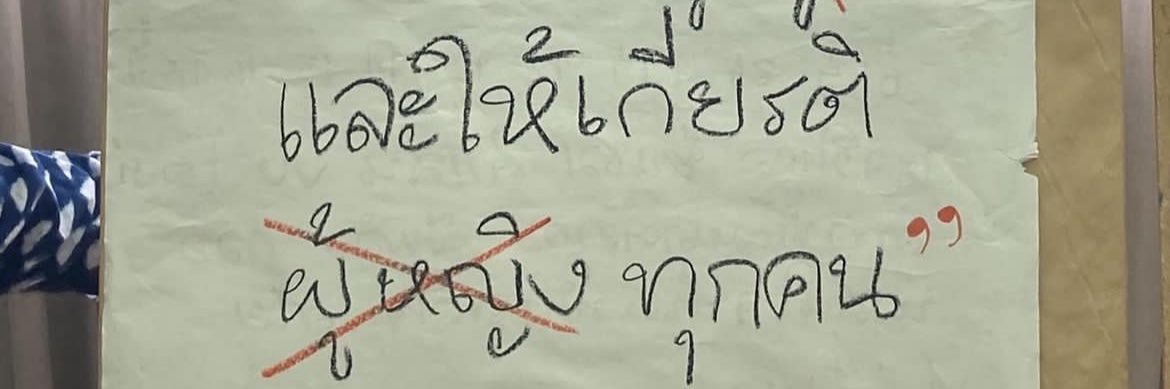 และให้เกียรติ
ผู้หญิง ทุกคน”